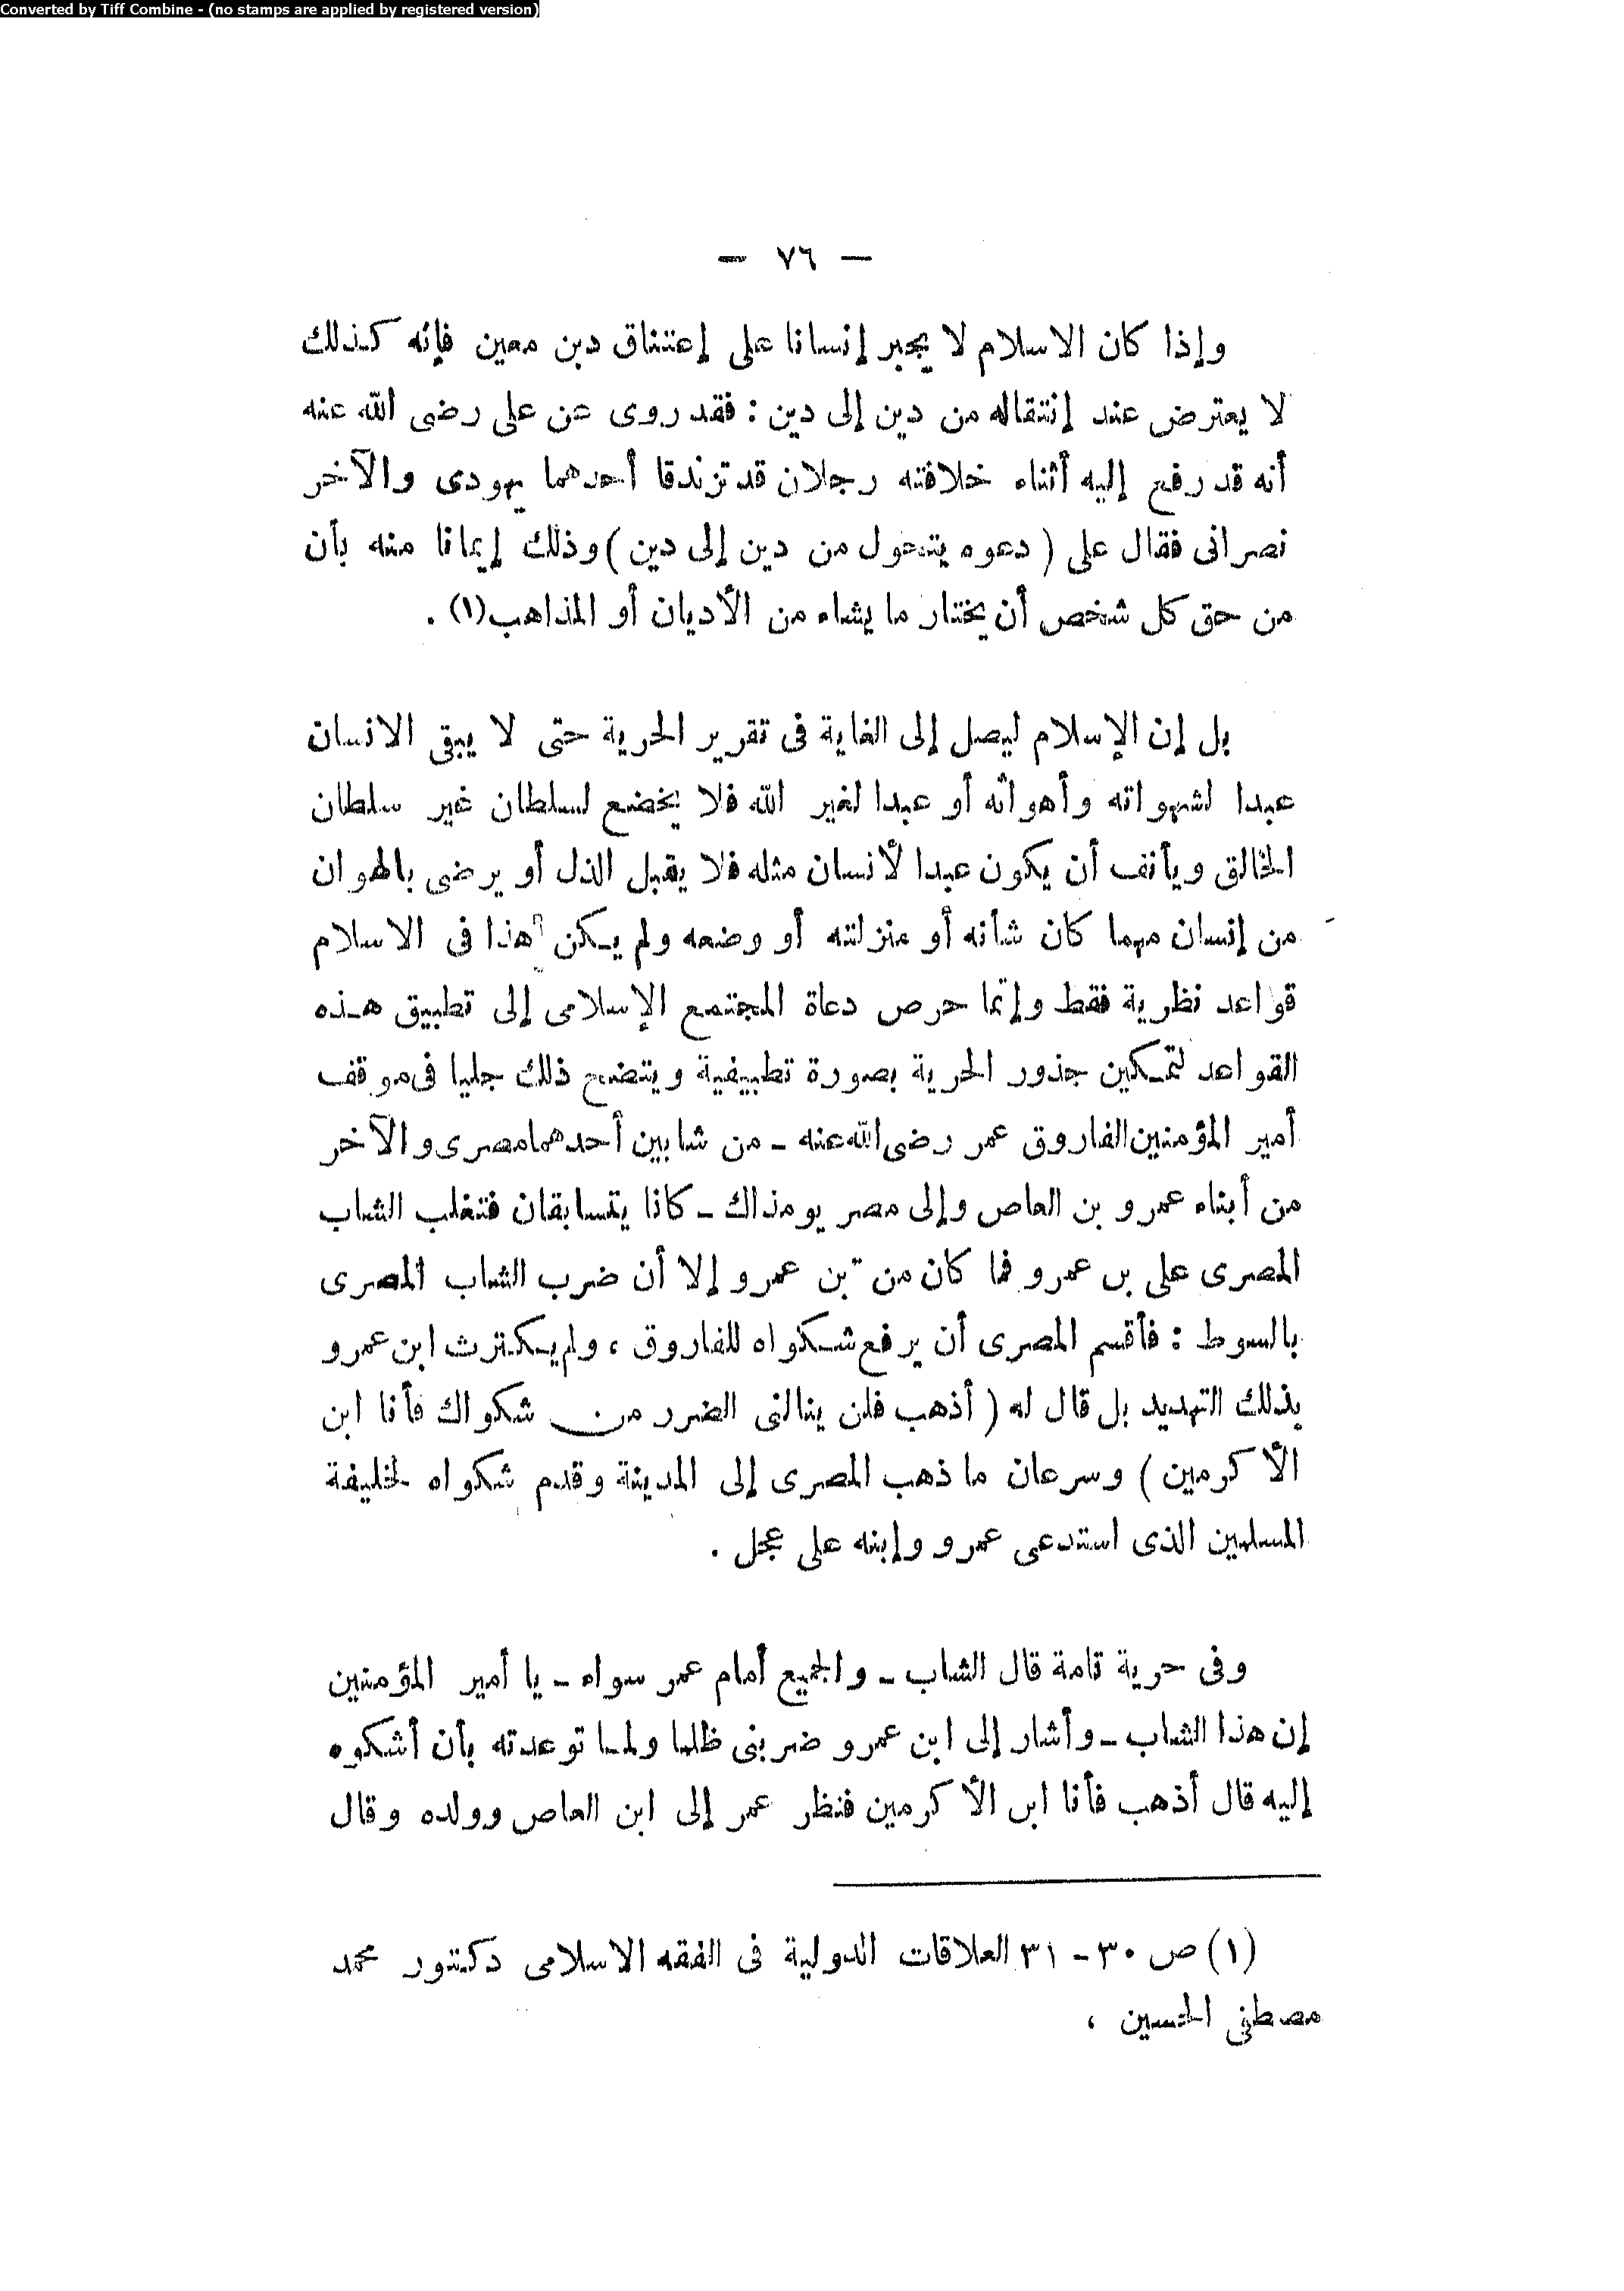 Converted by Tiff Combine - (no stamps are applied by registered version)
— ٧٦ —
وإذا كان الاسلام لا يجبر إنسانا على إعتناق دين معين فإنه كذلك
لا يعترض عند إنتقاله من دين إلى دين : فقد روى عن على رضى الله عنه
أنه قد رفع إليه أثناء خلافته رجلان قد تزندقا أحدهما يهودى والآخر
نصرانى فقال على ( دعوه يتحول من دين إلى دين ) وذلك إيمانا منه بأن
من حق كل شخص أن يختار ما يشاء من الأديان أو المذاهب(١) .
بل إن الإسلام ليصل إلى الغاية فى تقرير الحرية حتى لا يبقى الانسان
عبدا لشهواته وأهوائه أو عبدا لغير الله فلا يخضع لسلطان غير سلطان
الخالق ويأنف أن يكون عبدا لأنسان مثله فلا يقبل الذل أو يرضى بالهوان
من إنسان مهما كان شأنه أو منزلته أو وضعه ولم يكن هذا فى الاسلام
قواعد نظرية فقط وإنما حرص دعاة المجتمع الإسلامى إلى تطبيق هذه
القواعد لتمكين جذور الحرية بصورة تطبيقية ويتضح ذلك جليا فى موقف
أمير المؤمنين الفاروق عمر رضى الله عنه - من شابين أحدهما مصرى والآخر
من أبناء عمرو بن العاص وإلى مصر يومذاك - كانا يتسابقان فتغلب الشاب
المصرى على بن عمرو فما كان من بن عمرو إلا أن ضرب الشاب المصرى
بالسوط : فأقسم المصرى أن يرفع شكواه للفاروق ، ولم يكترث ابن عمرو
بذلك التهديد بل قال له ( أذهب فلن ينالنى الضرر من شكواك فأنا ابن
الأكرمين ) وسرعان ما ذهب المصرى إلى المدينة وقدم شكواه لخليفة
المسلمين الذى استدعى عمرو وإبنه على عجل .
وفى حرية تامة قال الشاب - والجميع أمام عمر سواء - يا أمير المؤمنين
إن هذا الشاب - وأشار إلى ابن عمرو ضربنى ظلما ولما توعدته بأن أشكوه
إليه قال أذهب فأنا ابن الأكرمين فنظر عمر إلى ابن العاص وولده وقال
(١) ص ٣٠ - ٣١ العلاقات الدولية فى الفقه الاسلامى دكتور محمد
مصطفى الحسين ،